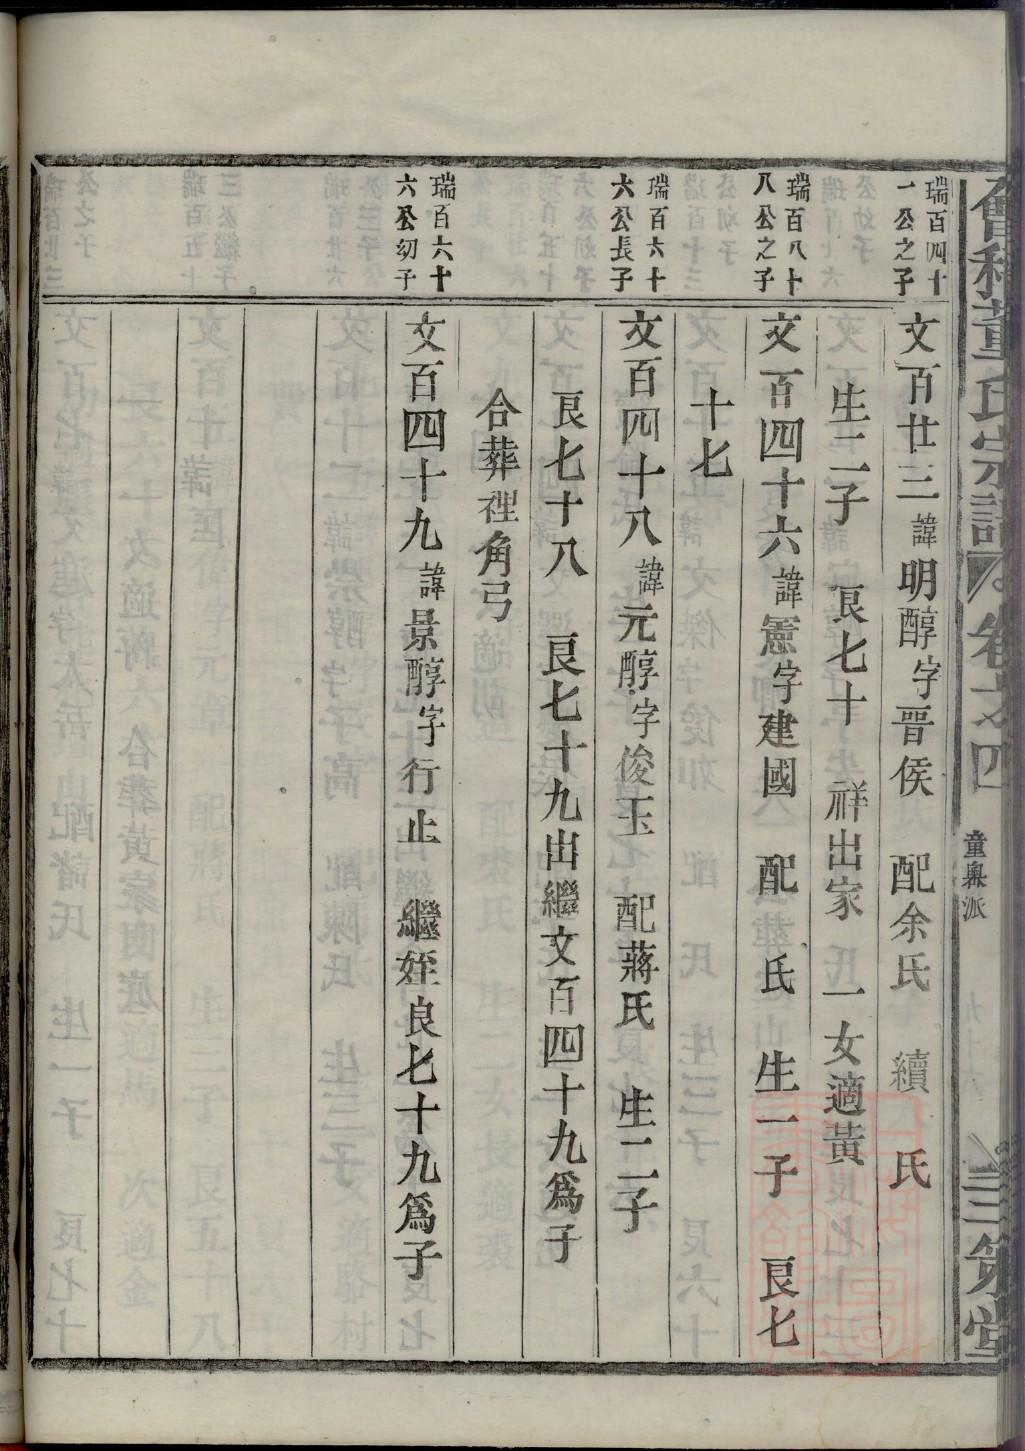 會稽董氏宗譜
卷之四
童㮤派
三策堂
瑞百四十
一公之子
文百廿三諱明醇字晋侯　配余氏　續　氏
生二子　良七十　祥出家　一女適黃
瑞百八十
八公之子
文百四十六諱憲字建國　配　氏　生一子　良七
十七
瑞百六十
六公長子
文百四十八諱元醇字俊玉　配蔣氏　生二子
良七十八　良七十九出繼文百四十九爲子
合葬裡角弓
瑞百六十
六公幼子
文百四十九諱景醇字行止　繼姪良七十九爲子